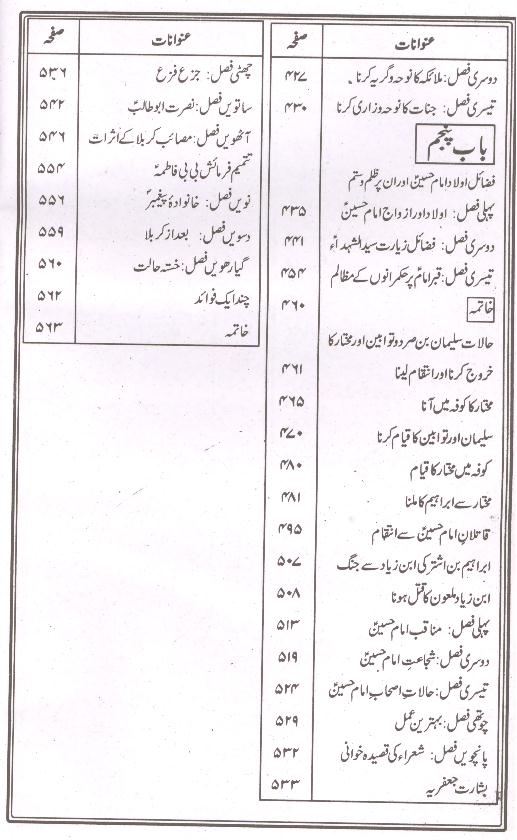 عنوانات صفحہ
دوسری فصل: ملائکہ کا نوحہ وگریہ کرنا ۴۲۷
تیسری فصل: جنات کا نوحہ وزاری کرنا ۴۳۰
باب پنجم
فضائل اولاد امام حسینؑ اور ان پر ظلم وستم
پہلی فصل: اولاد اور ازواج امام حسینؑ ۴۳۵
دوسری فصل: فضائل زیارت سید الشہداءؑ ۴۴۱
تیسری فصل: قبر امامؑ پر حکمرانوں کے مظالم ۴۵۴
خاتمہ ۴۶۰
حالات سلیمان بن صرد و توابین اور مختار کا
خروج کرنا اور انتقام لینا ۴۶۱
مختار کا کوفہ میں آنا ۴۶۵
سلیمان اور توابین کا قیام کرنا ۴۷۰
کوفہ میں مختار کا قیام ۴۸۰
مختار سے ابراہیم کا ملنا ۴۸۱
قاتلانِ امام حسینؑ سے انتقام ۴۹۵
ابراہیم بن اشتر کی ابن زیاد سے جنگ ۵۰۷
ابن زیاد ملعون کا قتل ہونا ۵۰۸
پہلی فصل: مناقب امام حسینؑ ۵۱۳
دوسری فصل: شجاعتِ امام حسینؑ ۵۱۹
تیسری فصل: حالاتِ اصحابِ امام حسینؑ ۵۲۴
چوتھی فصل: بہترین عمل ۵۲۹
پانچویں فصل: شعراء کی قصیدہ خوانی ۵۳۲
بشارت جعفریہ ۵۳۳
عنوانات صفحہ
چھٹی فصل: جزع فزع ۵۳۶
ساتویں فصل: نصرت ابوطالبؑ ۵۴۲
آٹھویں فصل: مصائب کربلا کے اثرات ۵۴۶
تتمیم فرمائش بی بی فاطمہؑ ۵۵۴
نویں فصل: خانوادۂ پیغمبرؐ ۵۵۶
دسویں فصل: بعد از کربلا ۵۵۹
گیارھویں فصل: خستہ حالت ۵۶۰
چند ایک فوائد ۵۶۲
خاتمہ ۵۶۳